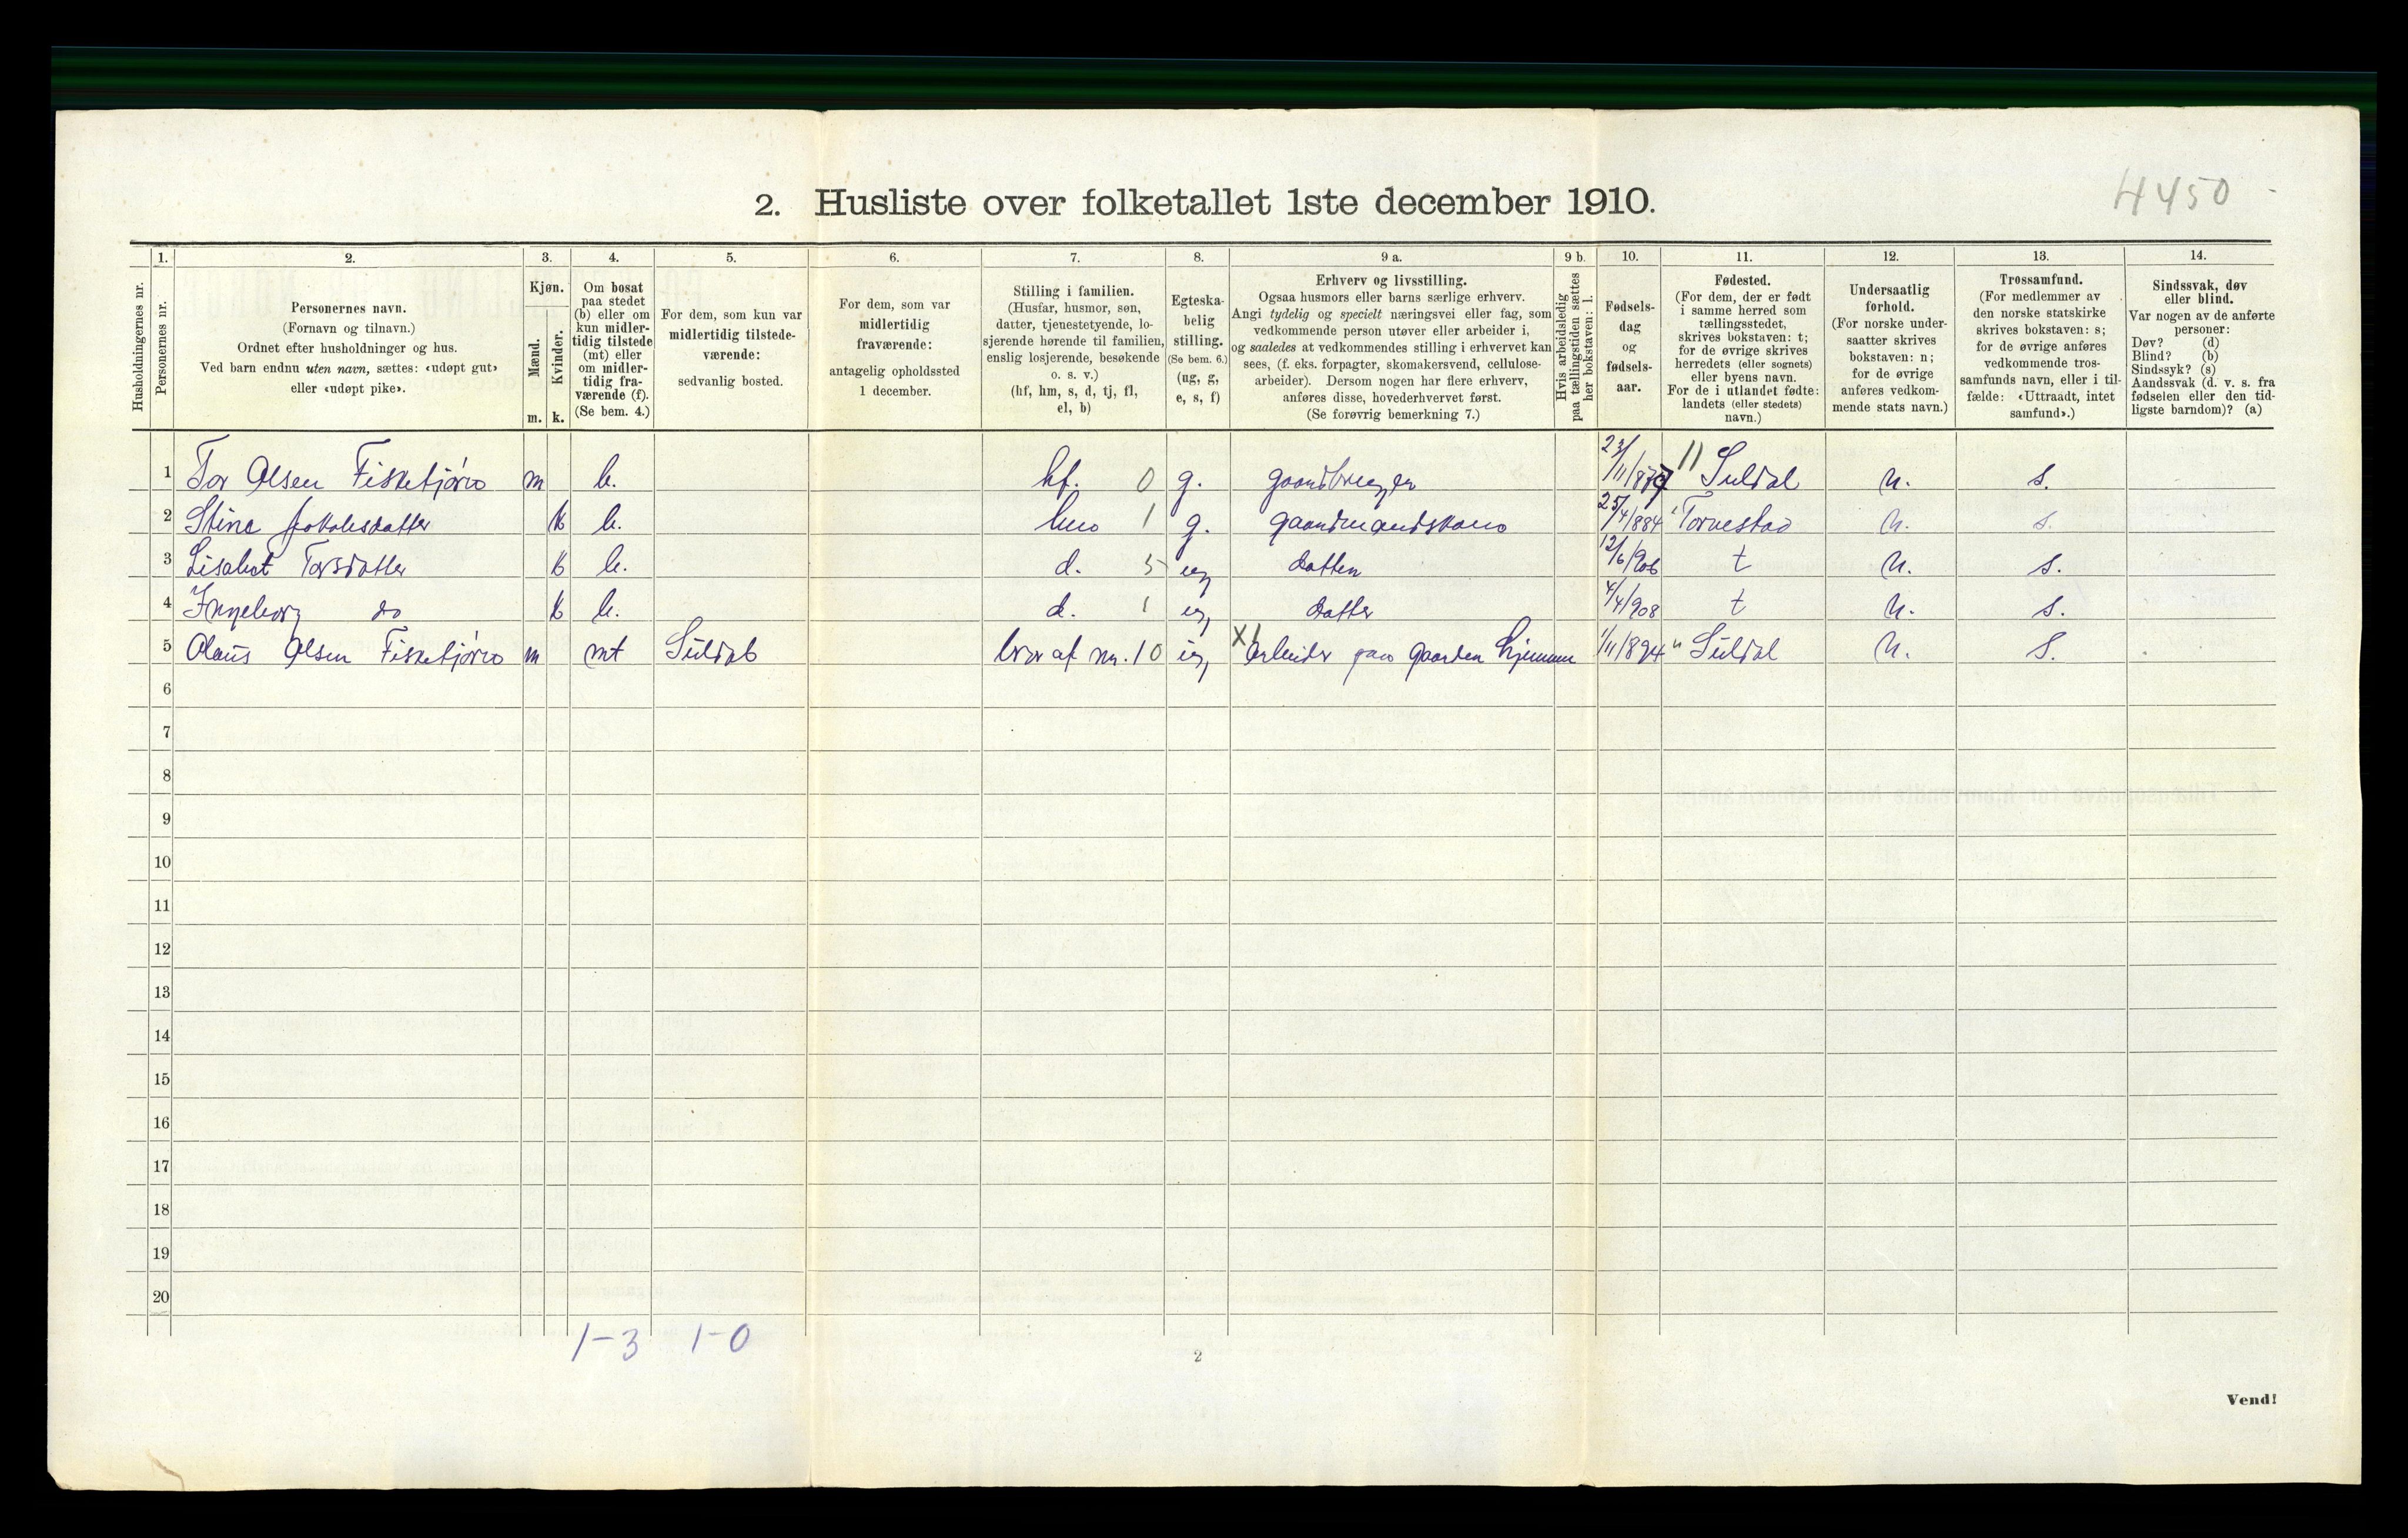 4450
2. Husliste over folketallet 1ste december 1910.
Husholdningernes nr.
1.
Personernes nr.
2.
Personernes navn.
(Fornavn og tilnavn.)
Ordnet efter husholdninger og hus.
Ved barn endnu uten navn, sættes: «udøpt gut»
eller «udøpt pike».
3.
Kjøn.
Mænd.
Kvinder.
m.
k.
4.
Om bosat
paa stedet
(b) eller om
kun midler-
tidig tilstede
(mt) eller
om midler-
tidig fra-
værende (f).
(Se bem. 4.)
5.
For dem, som kun var
midlertidig tilstede-
værende:
sedvanlig bosted.
6.
For dem, som var
midlertidig
fraværende:
antagelig opholdssted
1 december.
7.
Stilling i familien.
(Husfar, husmor, søn,
datter, tjenestetyende, lo-
sjerende hørende til familien,
enslig losjerende, besøkende
o. s. v.)
(hf, hm, s, d, tj, fl,
el, b)
8.
Egteska-
belig
stilling.
(Se bem. 6.)
(ug, g,
e, s, f)
9 a.
Erhverv og livsstilling.
Ogsaa husmors eller barns særlige erhverv.
Angi tydelig og specielt næringsvei eller fag, som
vedkommende person utøver eller arbeider i,
og saaledes at vedkommendes stilling i erhvervet kan
sees, (f. eks. forpagter, skomakersvend, cellulose-
arbeider). Dersom nogen har flere erhverv,
anføres disse, hovederhvervet først.
(Se forøvrig bemerkning 7.)
9 b.
Hvis arbeidsledig
paa tællingstiden sættes
her bokstaven: l.
10.
Fødsels-
dag
og
fødsels-
aar.
11.
Fødested.
(For dem, der er født
i samme herred som
tællingsstedet,
skrives bokstaven: t;
for de øvrige skrives
herredets (eller sognets)
eller byens navn.
For de i utlandet fødte:
landets (eller stedets)
navn.)
12.
Undersaatlig
forhold.
(For norske under-
saatter skrives
bokstaven: n;
for de øvrige
anføres vedkom-
mende stats navn.)
13.
Trossamfund.
(For medlemmer av
den norske statskirke
skrives bokstaven: s;
for de øvrige anføres
vedkommende tros-
samfunds navn, eller i til-
fælde: «Uttraadt, intet
samfund».)
14.
Sindssvak, døv
eller blind.
Var nogen av de anførte
personer:
Døv? (d)
Blind? (b)
Sindssyk? (s)
Aandssvak (d. v. s. fra
fødselen eller den tid-
ligste barndom)? (a)
1 Tor Olsen Fisketjøn m b. hf. 0 g. gaardbruger 23/11/879 11 Suldal n. s.
2 Stine k b. 1 g. 25/4/884 Torvestad n. s.
3 Lisabet Torsdatter k b. d. 5 ug datter 12/6/906 t n. s.
4 Ingeborg do k b. d. 1 ug, datter 4/4/908 t n. s.
5 Olaus Olsen Fisketjøn m mt Suldal bror af nr. 1 0 ug, X Arbeider paa gaarden hjemme 1/11/894 " Suldal n. s.
6
7
8
9
10
11
12
13
14
15
16
17
18
19
20
1-3 1-0
2
Vend!